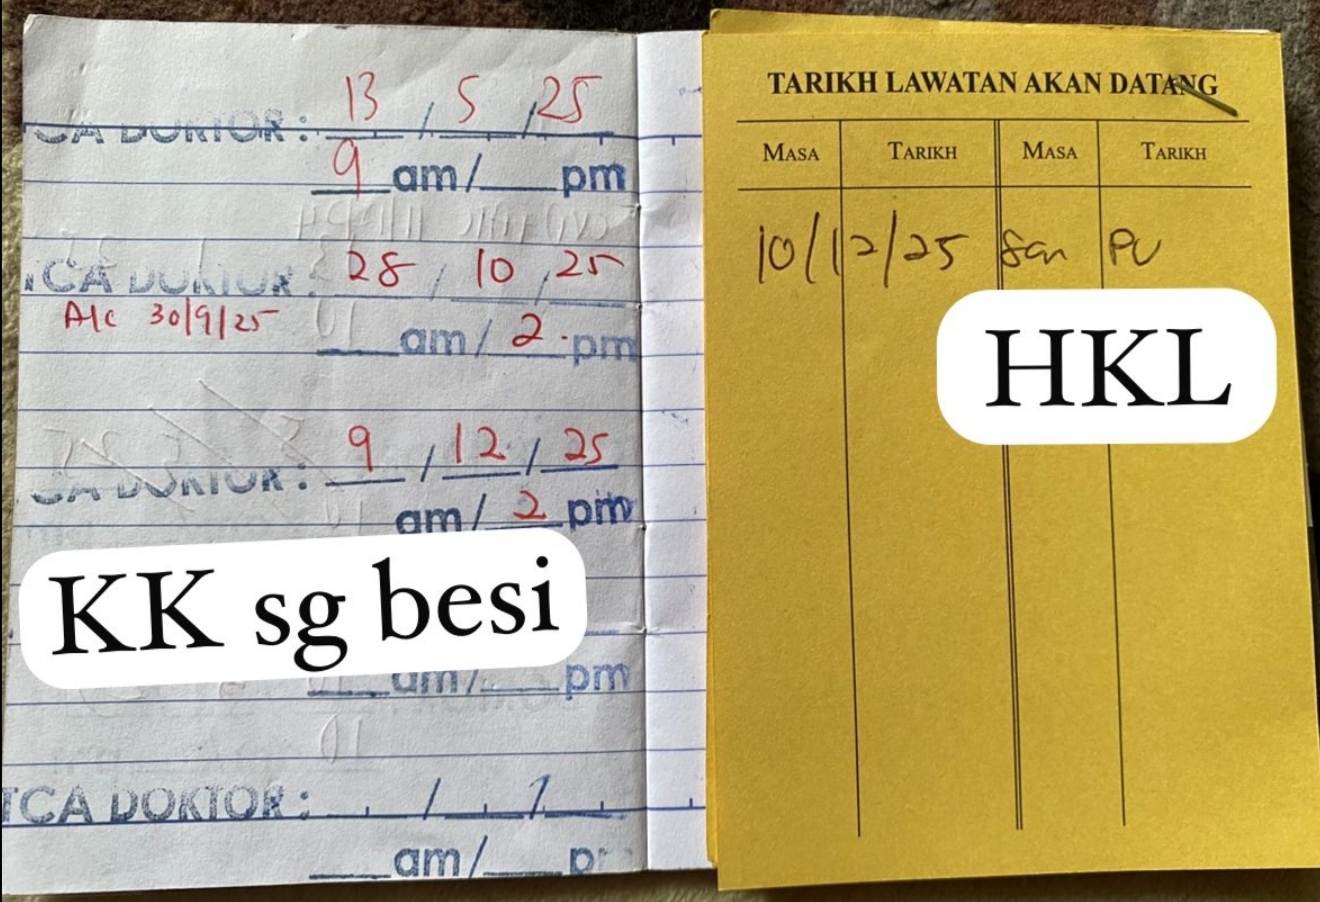 TCA DOKTOR : 13 / 5 / 25
9 am/ pm
TCA DOKTOR : 28 / 10 / 25
A/c 30/9/25
am/ 2 pm
TCA DOKTOR : 9 / 12 / 25
am/ 2 pm
KK sg besi
am/ pm
TCA DOKTOR : / /
am/ p
TARIKH LAWATAN AKAN DATANG
MASA TARIKH MASA TARIKH
10/12/25 8am
HKL